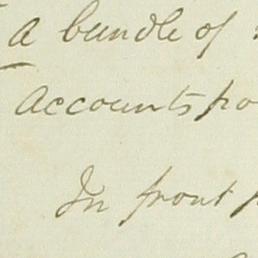 a bundle of
accounts po
In front